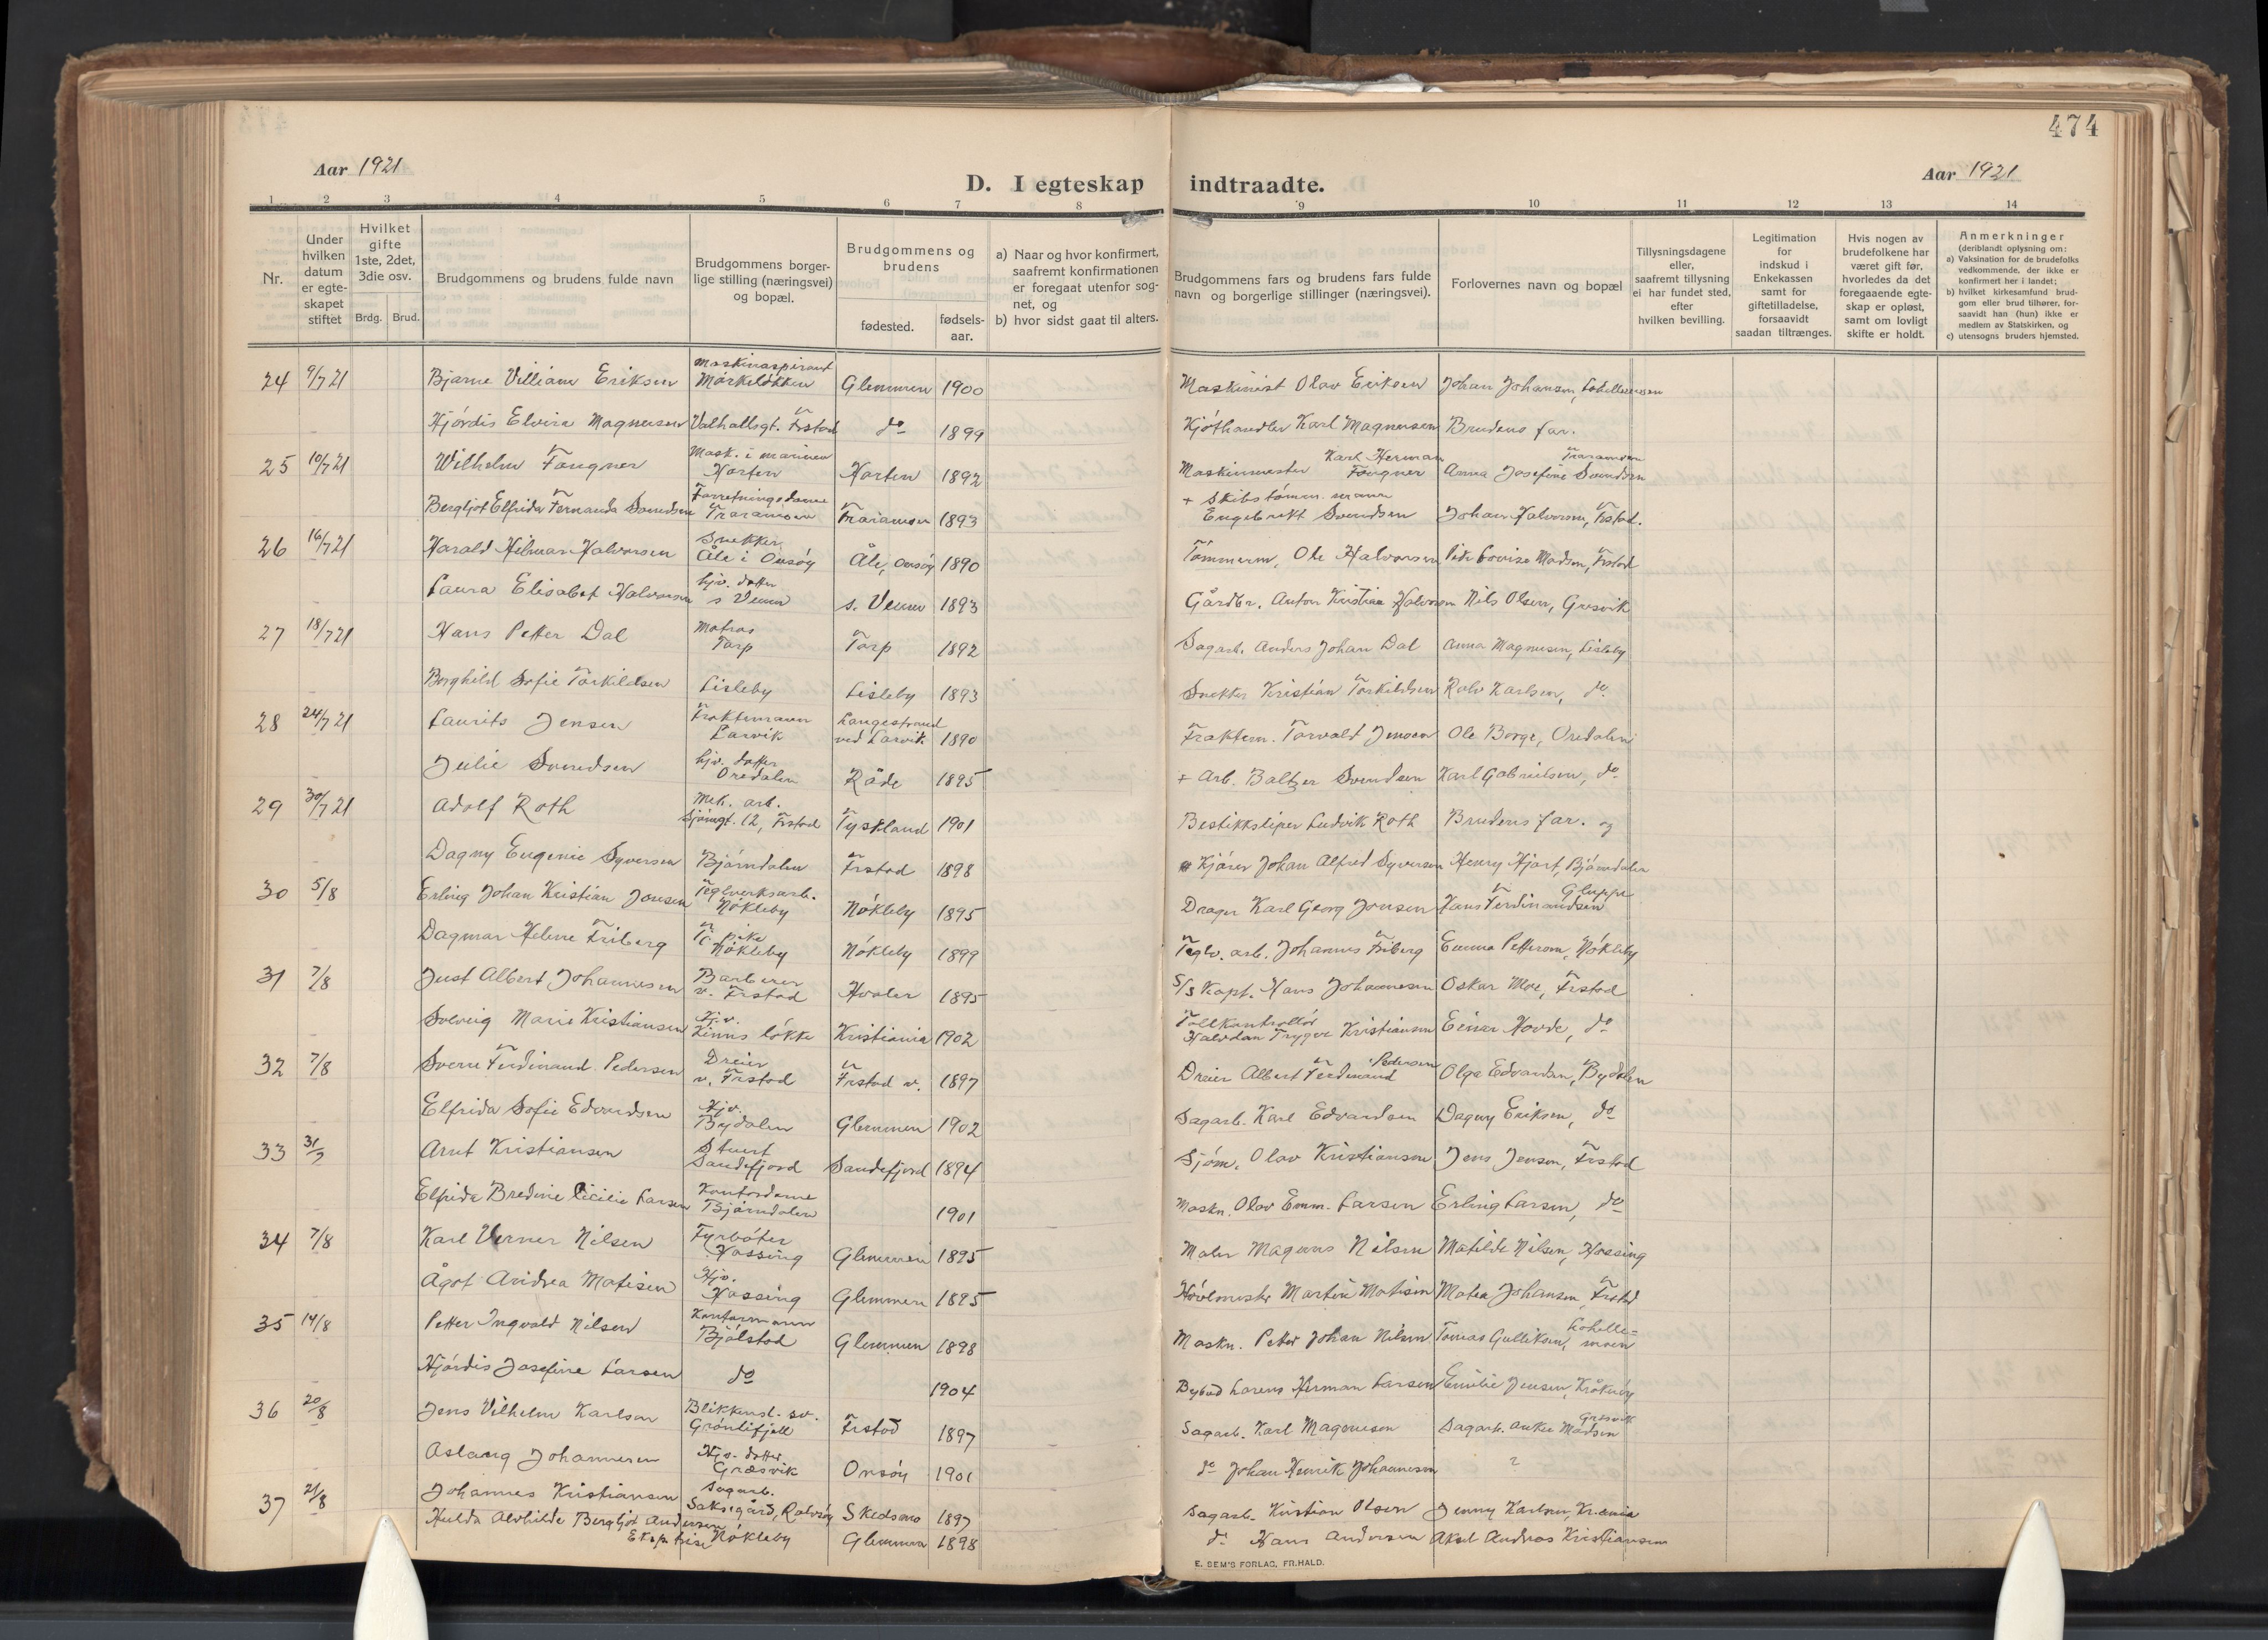 474
Aar 1921
D. I egteskap indtraadte.
Aar 1921
1 2 3 4 5 6 7 8 9 10 11 12 13 14
Nr.
Under hvilken datum er egteskapet stiftet
Hvilket gifte 1ste, 2det, 3die osv.
Brdg. Brud.
Brudgommens og brudens fulde navn
Brudgommens borgerlige stilling (næringsvei) og bopæl.
Brudgommens og brudens
fødested.
fødselsaar.
a) Naar og hvor konfirmert, saafremt konfirmationen er foregaat utenfor sognet, og
b) hvor sidst gaat til alters.
Brudgommens fars og brudens fars fulde navn og borgerlige stillinger (næringsvei).
Forlovernes navn og bopæl
Tillysningsdagene eller, saafremt tillysning ei har fundet sted, efter hvilken bevilling.
Legitimation for indskud i Enkekassen samt for giftetilladelse, forsaavidt saadan tiltrænges.
Hvis nogen av brudefolkene har været gift før, hvorledes da det foregaaende egteskap er opløst, samt om lovligt skifte er holdt.
Anmerkninger
(deriblandt oplysning om:
a) Vaksination for de brudefolks vedkommende, der ikke er konfirmert her i landet;
b) hvilket kirkesamfund brudgom eller brud tilhører, forsaavidt han (hun) ikke er medlem av Statskirken, og
c) utensogns bruders hjemsted.
24 9/7 21 Bjarne Villiam Eriksen Maskinaspirant Mörkelökken Glemmen 1900 Maskinist Olav Eriksen Johan Johansen,
Hjördis Elvira Magnusen Valhallsgt. Frstad do 1899 Kjöthandler Karl Magnusen Brudens far.
25 10/7 21 Wilhelm Fougner Mask. i marinen Horten Horten 1892 Maskinmester Karl Herman Fougner Anna Josefine Svendsen Traraveien
Bergljot Elfrida Fernanda Svendsen Forretningsdame 1893 + Skibstömm. mann Engebrekt Svendsen Johan Halvorsen, Frstad.
26 16/7 21 Harald Hilmar Halvorsen Snekker Åle i Onsöy Åle, Onsöy 1890 Tömmerm. Ole Halvorsen Madsen, Frstad
Laura Elisabet Halvorsen hjv. datter s Veum s. Veum 1893 Gårdbr. Anton Kristian Halvorsen Nils Olsen, Gresvik
27 18/7 21 Hans Petter Dal Matros Torp Torp 1892 Sagarb. Anders Johan Dal Anna Magnusen, Lisleby
Borghild Sofie Torkildsen Lisleby Lisleby 1893 Snekker Kristian Torkildsen Rolv Karlsen, do
28 24/7 21 Laurits Jensen Fraktemann Larvik Langestrand ved Larvik 1890 Fraktem. Torvald Jensen Ole Borge, Oredalen
Julie Svendsen hjv. datter Oredalen Råde 1895 + Arb. Baltzer Svendsen Karl Gabrielsen, do
29 30/7 21 Adolf Roth Mek. arb. Sjömgt. 12, Frstad Tyskland 1901 Bestikksliper Ludvik Roth Brudens far. og
Dagny Eugenie Syversen Bjørndalen Frstad 1898 Kjörer Johan Alfred Syversen Henry Hjort, Bjørndalen
30 5/8 Erling Johan Kristian Jonsen Teglverksarb. Nökleby Nökleby 1895 Drager Karl Georg Jonsen Hans Ferdinandsen Gluppe
Dagmar Helene Friberg Nökleby Nökleby 1899 Teglv. arb. Johannes Friberg Emma Petterson, Nökleby
31 7/8 Just Albert Johannesen Barberer v. Frstad Hvaler 1895 S/S Kapt. Hans Johannesen Oskar Moe, Frstad
Solveig Marie Kristiansen Hjv. Zinns lökke Kristiania 1902 Tollkontrollör Halvdan Trygve Kristiansen Einar Hovde, do
32 7/8 Sverre Ferdinand Pedersen Dreier v. Frstad Frstad v. 1897 Dreier Albert Ferdinand Pedersen Olga Edvardsen, Bydalen
Elfrida Sofie Edvardsen Hjv. Bydalen Glemmen 1902 Sagarb. Karl Edvardsen Dagny Eriksen, do
33 31/7 Arnt Kristiansen Stuert Sandefjord Sandefjord 1894 Sjöm. Olav Kristiansen Jens Jensen, Frstad
Elfrida Bredine Cicilie Larsen Kontordame Bjørndalen 1901 Maskn. Olav Emm. Larsen Erling Larsen, do
34 7/8 Karl Verner Nilsen Fyrböter Hassing Glemmen 1895 Maler Magnus Nilsen Matilde Nilsen, Hassing
Ågot Andrea Matisen Hjv. Hassing Glemmen 1895 Hövlmester Martin Matisen Matea Johansen, Frstad
35 14/8 Petter Ingvald Nilsen Kontormann Bjølstad Glemmen 1898 Maskn. Petter Johan Nilsen Tomas Gulliksen,
Hjördis Josefine Larsen do 1904 Bybud Lorens Herman Larsen Emilie Jensen, Kråkeröy
36 20/8 Jens Vilhelm Karlson Blikkensl. sv. Grönlifjell Frstad 1897 Sagarb. Karl Magnusson Sagarb. Anker Madsen Gresvik
Aslaug Johannesen Hjv. datter Græsvik Onsöy 1901 do Johan Henrik Johannesen ?
37 21/8 Johannes Kristiansen Sagarb. Saksegård, Rolvsöy Skedsmo 1897 Sagarb. Kristian Olsen Jenny Karlsen, Kr.ania
Hulda Alvhilde Bergljot Andersen Eksp.trise Nökleby Glemmen 1898 do Hans Andersen Aksel Andreas Kristiansen
E. SEM'S FORLAG, FR.HALD.